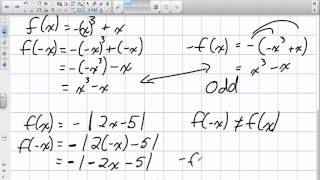 f(x) = -(x)³ + x
f(-x) = -(-x)³ + (-x)
= -(-x)³ - x
= x³ - x
-f(x) = -(-x³ + x)
= x³ - x
Odd
f(x) = - | 2x - 5 |
f(-x) = - | 2(-x) - 5 |
= - | -2x - 5 |
f(-x) ≠ f(x)
-f(